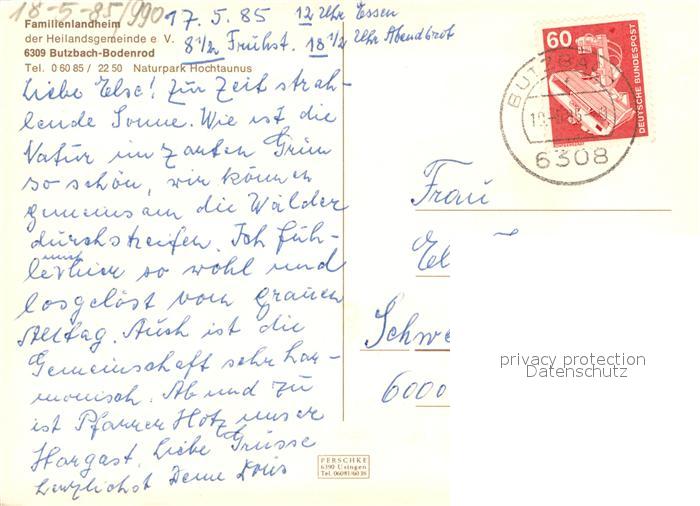 18-5-85/990
Familienlandheim
der Heilandsgemeinde e. V.
6309 Butzbach-Bodenrod
Tel. 0 60 85 / 22 50 Naturpark Hochtaunus
17. 5. 85 12 Uhr Essen
8 1/2 Frühst. 18 1/2 Uhr Abendbrot
Liebe Else! Zur Zeit strah-
lende Sonne. Wie ist die
Natur im zarten Grün
so schön, wir können
gemeinsam die Wälder
durchstreifen. Ich füh-
le mich hier so wohl und
losgelöst vom grauen
Alltag. Auch ist die
Gemeinschaft sehr har-
monisch. Ab und zu
ist Pfarrer Hotz unser
Hausgast. Liebe Grüsse
herzlichst Deine Doris
60
DEUTSCHE BUNDESPOST
BUTZBACH
6308
Frau
El
Schwe
6000
privacy protection
Datenschutz
PERSCHKE
6390 Usingen
Tel. 06081/6038